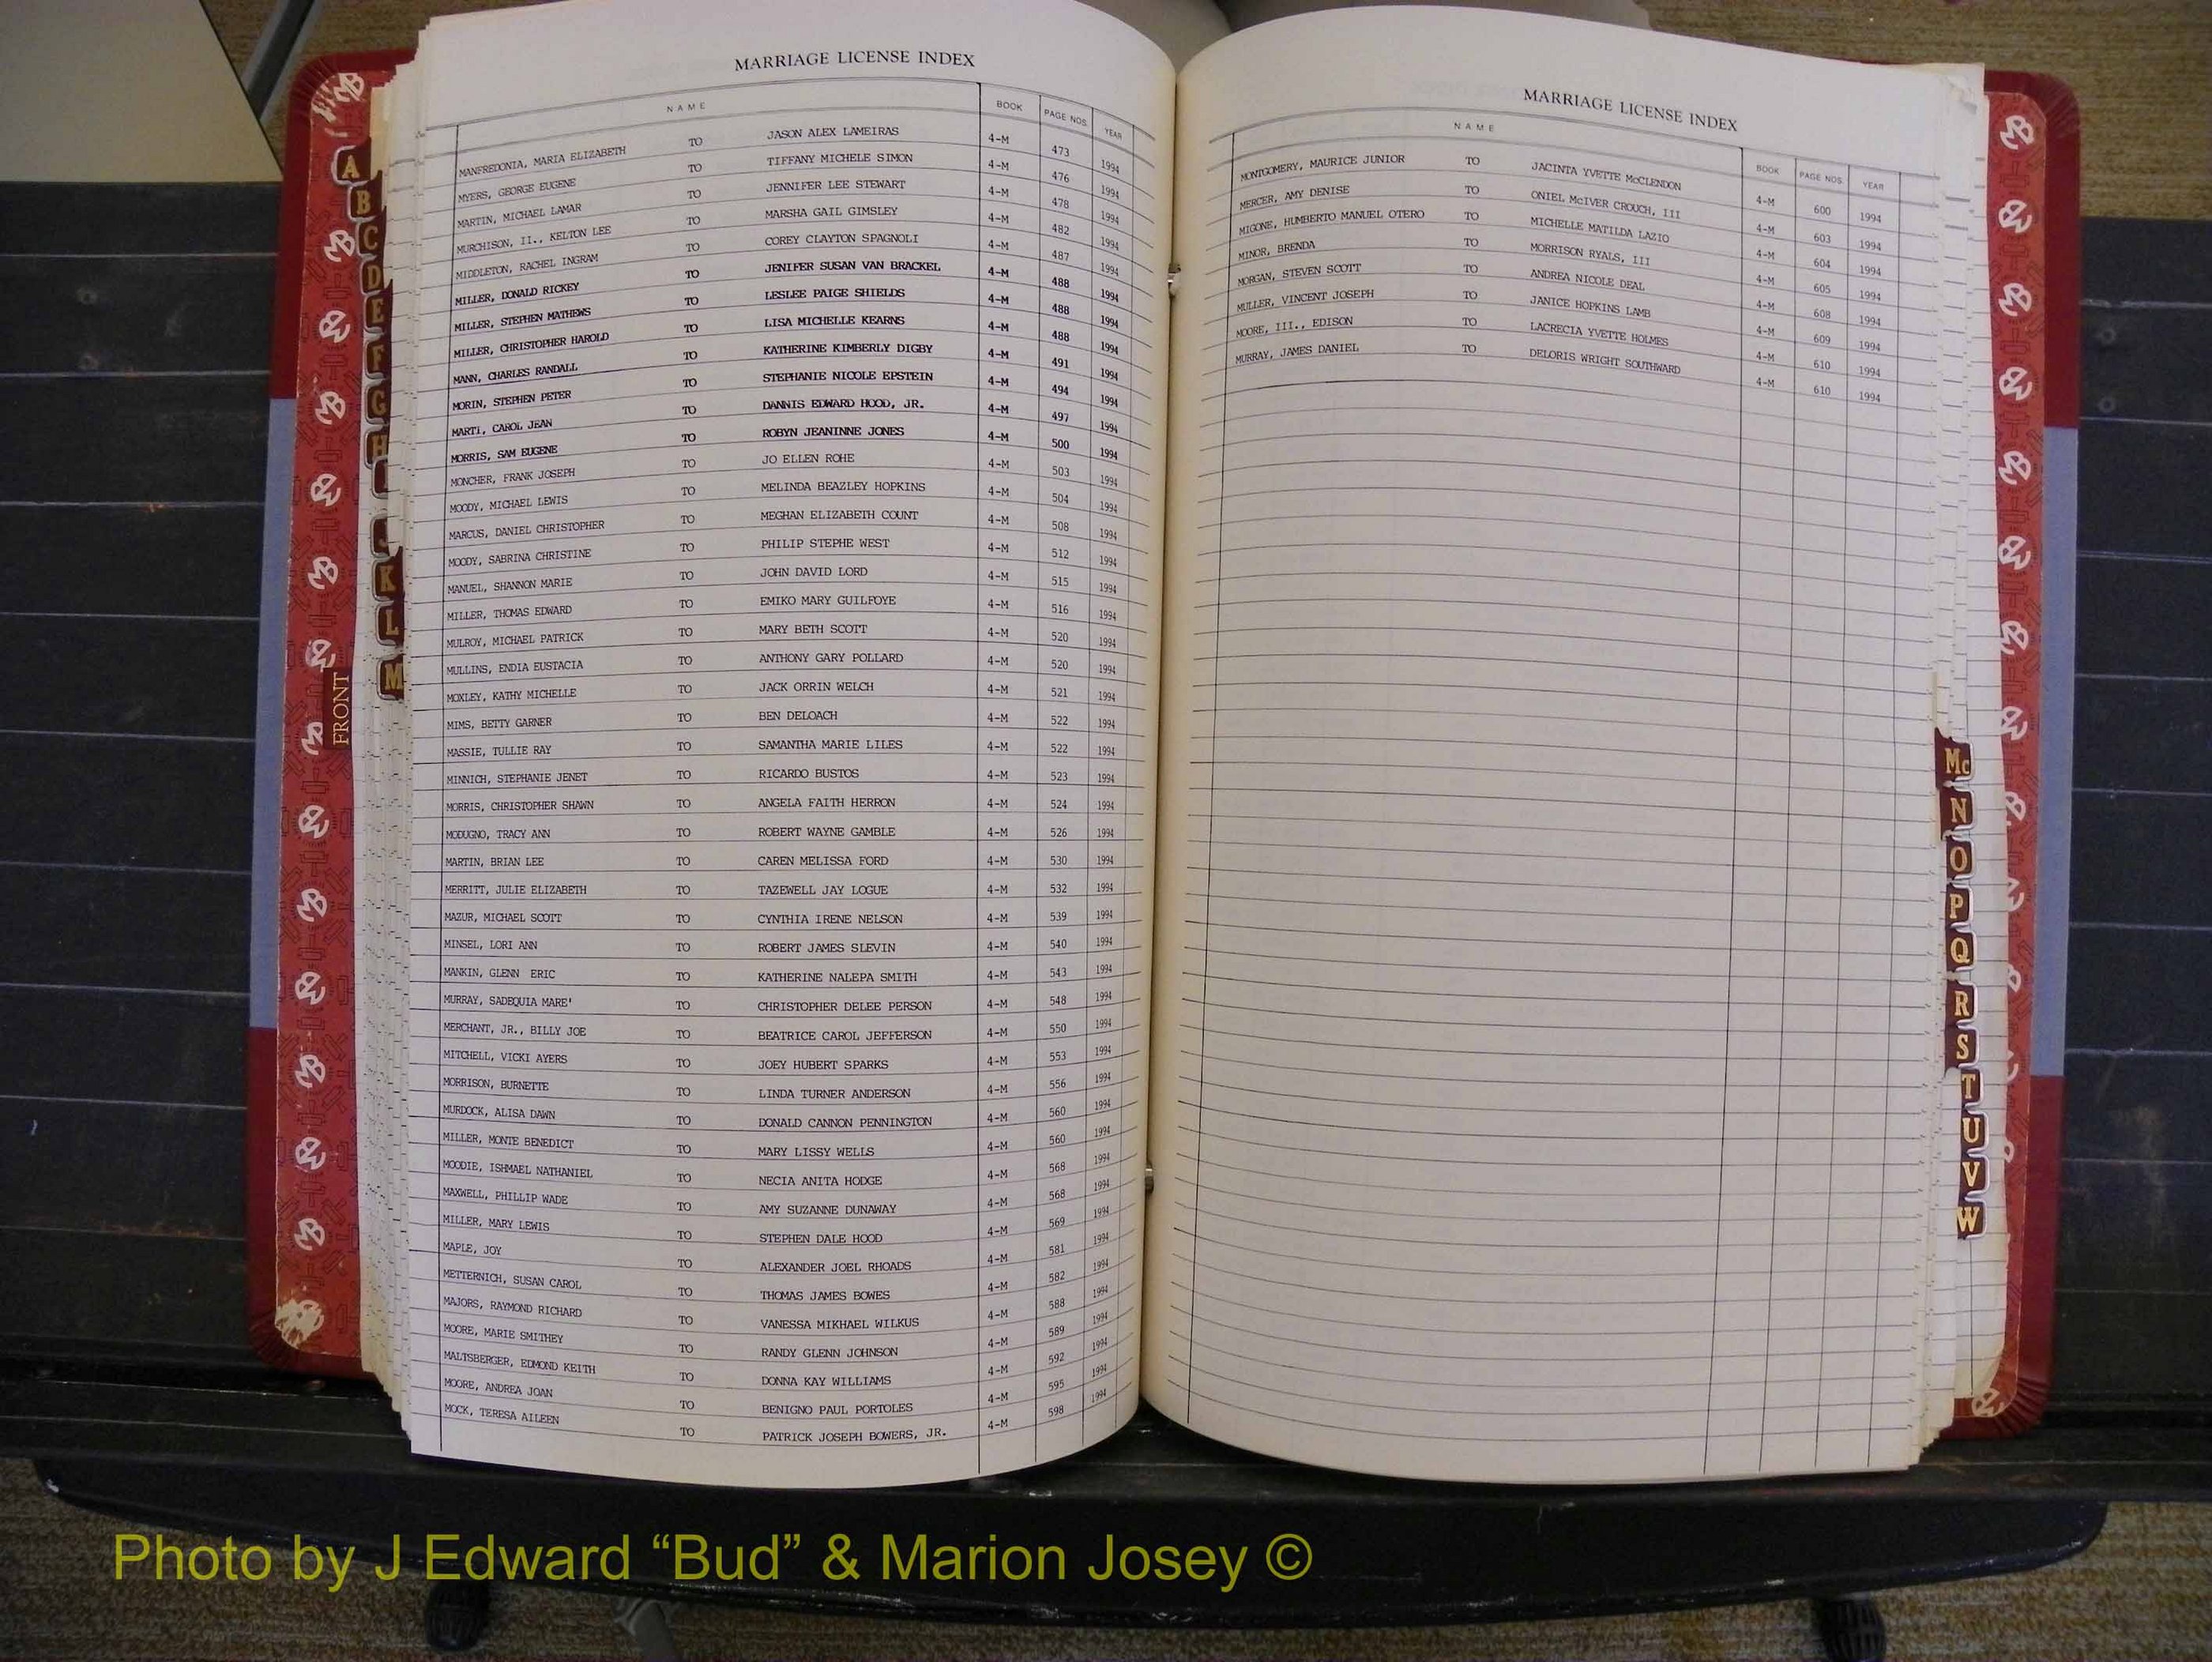 MARRIAGE LICENSE INDEX
NAME BOOK PAGE NOS. YEAR
MANFREDONIA, MARIA ELIZABETH TO JASON ALEX LAMEIRAS 4-M 473 1994
MYERS, GEORGE EUGENE TO TIFFANY MICHELE SIMON 4-M 476 1994
MARTIN, MICHAEL LAMAR TO JENNIFER LEE STEWART 4-M 478 1994
MURCHISON, II., KELTON LEE TO MARSHA GAIL GIMSLEY 4-M 482 1994
MIDDLETON, RACHEL INGRAM TO COREY CLAYTON SPAGNOLI 4-M 487 1994
MILLER, DONALD RICKEY TO JENIFER SUSAN VAN BRACKEL 4-M 488 1994
MILLER, STEPHEN MATHEWS TO LESLEE PAIGE SHIELDS 4-M 488 1994
MILLER, CHRISTOPHER HAROLD TO LISA MICHELLE KEARNS 4-M 488 1994
MANN, CHARLES RANDALL TO KATHERINE KIMBERLY DIGBY 4-M 491 1994
MORIN, STEPHEN PETER TO STEPHANIE NICOLE EPSTEIN 4-M 494 1994
MARTI, CAROL JEAN TO DANNIS EDWARD HOOD, JR. 4-M 497 1994
MORRIS, SAM EUGENE TO ROBYN JEANINNE JONES 4-M 500 1994
MONCHER, FRANK JOSEPH TO JO ELLEN ROHE 4-M 503 1994
MOODY, MICHAEL LEWIS TO MELINDA BEAZLEY HOPKINS 4-M 504 1994
MARCUS, DANIEL CHRISTOPHER TO MEGHAN ELIZABETH COUNT 4-M 508 1994
MOODY, SABRINA CHRISTINE TO PHILIP STEPHE WEST 4-M 512 1994
MANUEL, SHANNON MARIE TO JOHN DAVID LORD 4-M 515 1994
MILLER, THOMAS EDWARD TO EMIKO MARY GUILFOYE 4-M 516 1994
MULROY, MICHAEL PATRICK TO MARY BETH SCOTT 4-M 520 1994
MULLINS, ENDIA EUSTACIA TO ANTHONY GARY POLLARD 4-M 520 1994
MOXLEY, KATHY MICHELLE TO JACK ORRIN WELCH 4-M 521 1994
MIMS, BETTY GARNER TO BEN DELOACH 4-M 522 1994
MASSIE, TULLIE RAY TO SAMANTHA MARIE LILES 4-M 522 1994
MINNICH, STEPHANIE JENET TO RICARDO BUSTOS 4-M 523 1994
MORRIS, CHRISTOPHER SHAWN TO ANGELA FAITH HERRON 4-M 524 1994
MODUGNO, TRACY ANN TO ROBERT WAYNE GAMBLE 4-M 526 1994
MARTIN, BRIAN LEE TO CAREN MELISSA FORD 4-M 530 1994
MERRITT, JULIE ELIZABETH TO TAZEWELL JAY LOGUE 4-M 532 1994
MAZUR, MICHAEL SCOTT TO CYNTHIA IRENE NELSON 4-M 539 1994
MINSEL, LORI ANN TO ROBERT JAMES SLEVIN 4-M 540 1994
MANKIN, GLENN ERIC TO KATHERINE NALEPA SMITH 4-M 543 1994
MURRAY, SADEQUIA MARE' TO CHRISTOPHER DELEE PERSON 4-M 548 1994
MERCHANT, JR., BILLY JOE TO BEATRICE CAROL JEFFERSON 4-M 550 1994
MITCHELL, VICKI AYERS TO JOEY HUBERT SPARKS 4-M 553 1994
MORRISON, BURNETTE TO LINDA TURNER ANDERSON 4-M 556 1994
MURDOCK, ALISA DAWN TO DONALD CANNON PENNINGTON 4-M 560 1994
MILLER, MONTE BENEDICT TO MARY LISSY WELLS 4-M 560 1994
MOODIE, ISHMAEL NATHANIEL TO NECIA ANITA HODGE 4-M 568 1994
MAXWELL, PHILLIP WADE TO AMY SUZANNE DUNAWAY 4-M 568 1994
MILLER, MARY LEWIS TO STEPHEN DALE HOOD 4-M 569 1994
MAPLE, JOY TO ALEXANDER JOEL RHOADS 4-M 581 1994
METTERNICH, SUSAN CAROL TO THOMAS JAMES BOWES 4-M 582 1994
MAJORS, RAYMOND RICHARD TO VANESSA MIKHAEL WILKUS 4-M 588 1994
MOORE, MARIE SMITHEY TO RANDY GLENN JOHNSON 4-M 589 1994
MALTSBERGER, EDMOND KEITH TO DONNA KAY WILLIAMS 4-M 592 1994
MOORE, ANDREA JOAN TO BENIGNO PAUL PORTOLES 4-M 595 1994
MOCK, TERESA AILEEN TO PATRICK JOSEPH BOWERS, JR. 4-M 598 1994
MARRIAGE LICENSE INDEX
NAME BOOK PAGE NOS. YEAR
MONTGOMERY, MAURICE JUNIOR TO JACINTA YVETTE McCLENDON 4-M 600 1994
MERCER, AMY DENISE TO ONIEL McIVER CROUCH, III 4-M 603 1994
MIGONE, HUMBERTO MANUEL OTERO TO MICHELLE MATILDA LAZIO 4-M 604 1994
MINOR, BRENDA TO MORRISON RYALS, III 4-M 605 1994
MORGAN, STEVEN SCOTT TO ANDREA NICOLE DEAL 4-M 608 1994
MULLER, VINCENT JOSEPH TO JANICE HOPKINS LAMB 4-M 609 1994
MOORE, III., EDISON TO LACRECIA YVETTE HOLMES 4-M 610 1994
MURRAY, JAMES DANIEL TO DELORIS WRIGHT SOUTHWARD 4-M 610 1994
A
B
C
D
E
F
G
H
J
K
L
M
FRONT
Mc
N
O
P
Q
R
S
T
U
V
W
Photo by J Edward “Bud” & Marion Josey ©